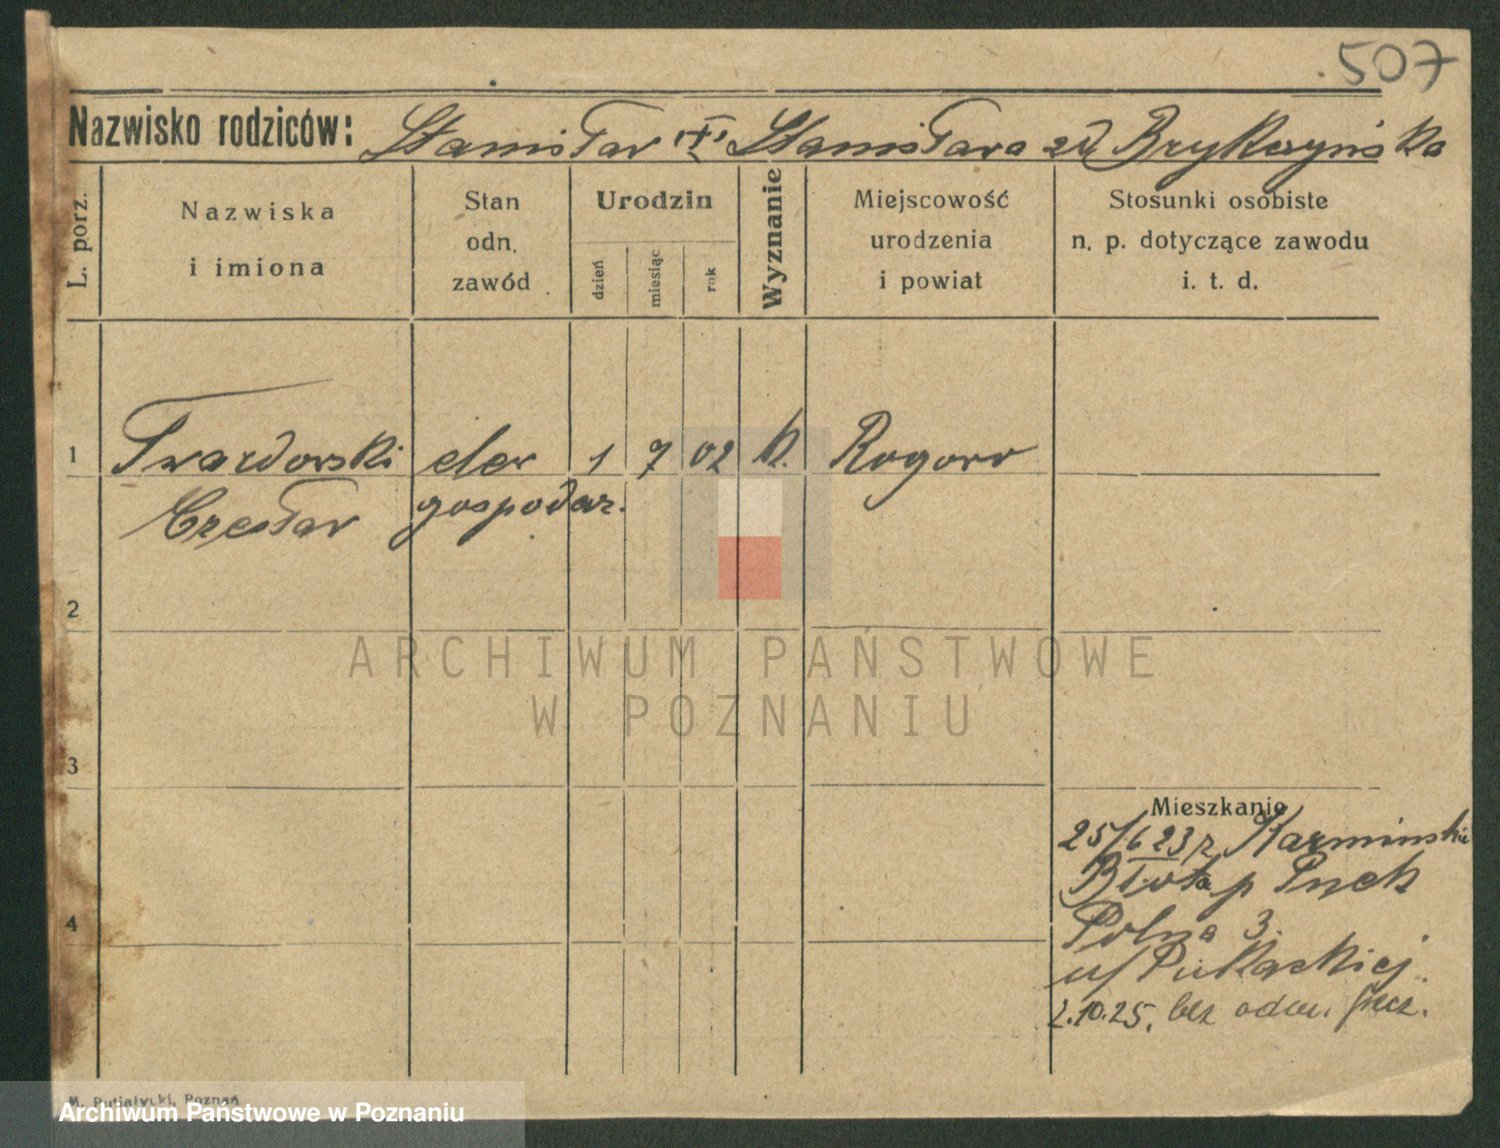 507
Nazwisko rodziców: Stanisław "†" Stanisława zd Brykczyńska
L. porz.
Nazwiska
i imiona
Stan
odn.
zawód
Urodzin
dzień
miesiąc
rok
Wyznanie
Miejscowość
urodzenia
i powiat
Stosunki osobiste
n. p. dotyczące zawodu
i. t. d.
1 Twardowski elew 1 7 02 k. Rogowo
Czesław gospodar.
2
ARCHIWUM PAŃSTWOWE
W POZNANIU
3
Mieszkanie
25/6 23 r
p
Polna 3.
u/ Pułackiej
4
2.10.25. bez odm.
M. Putiatycki, Poznań
Archiwum Państwowe w Poznaniu